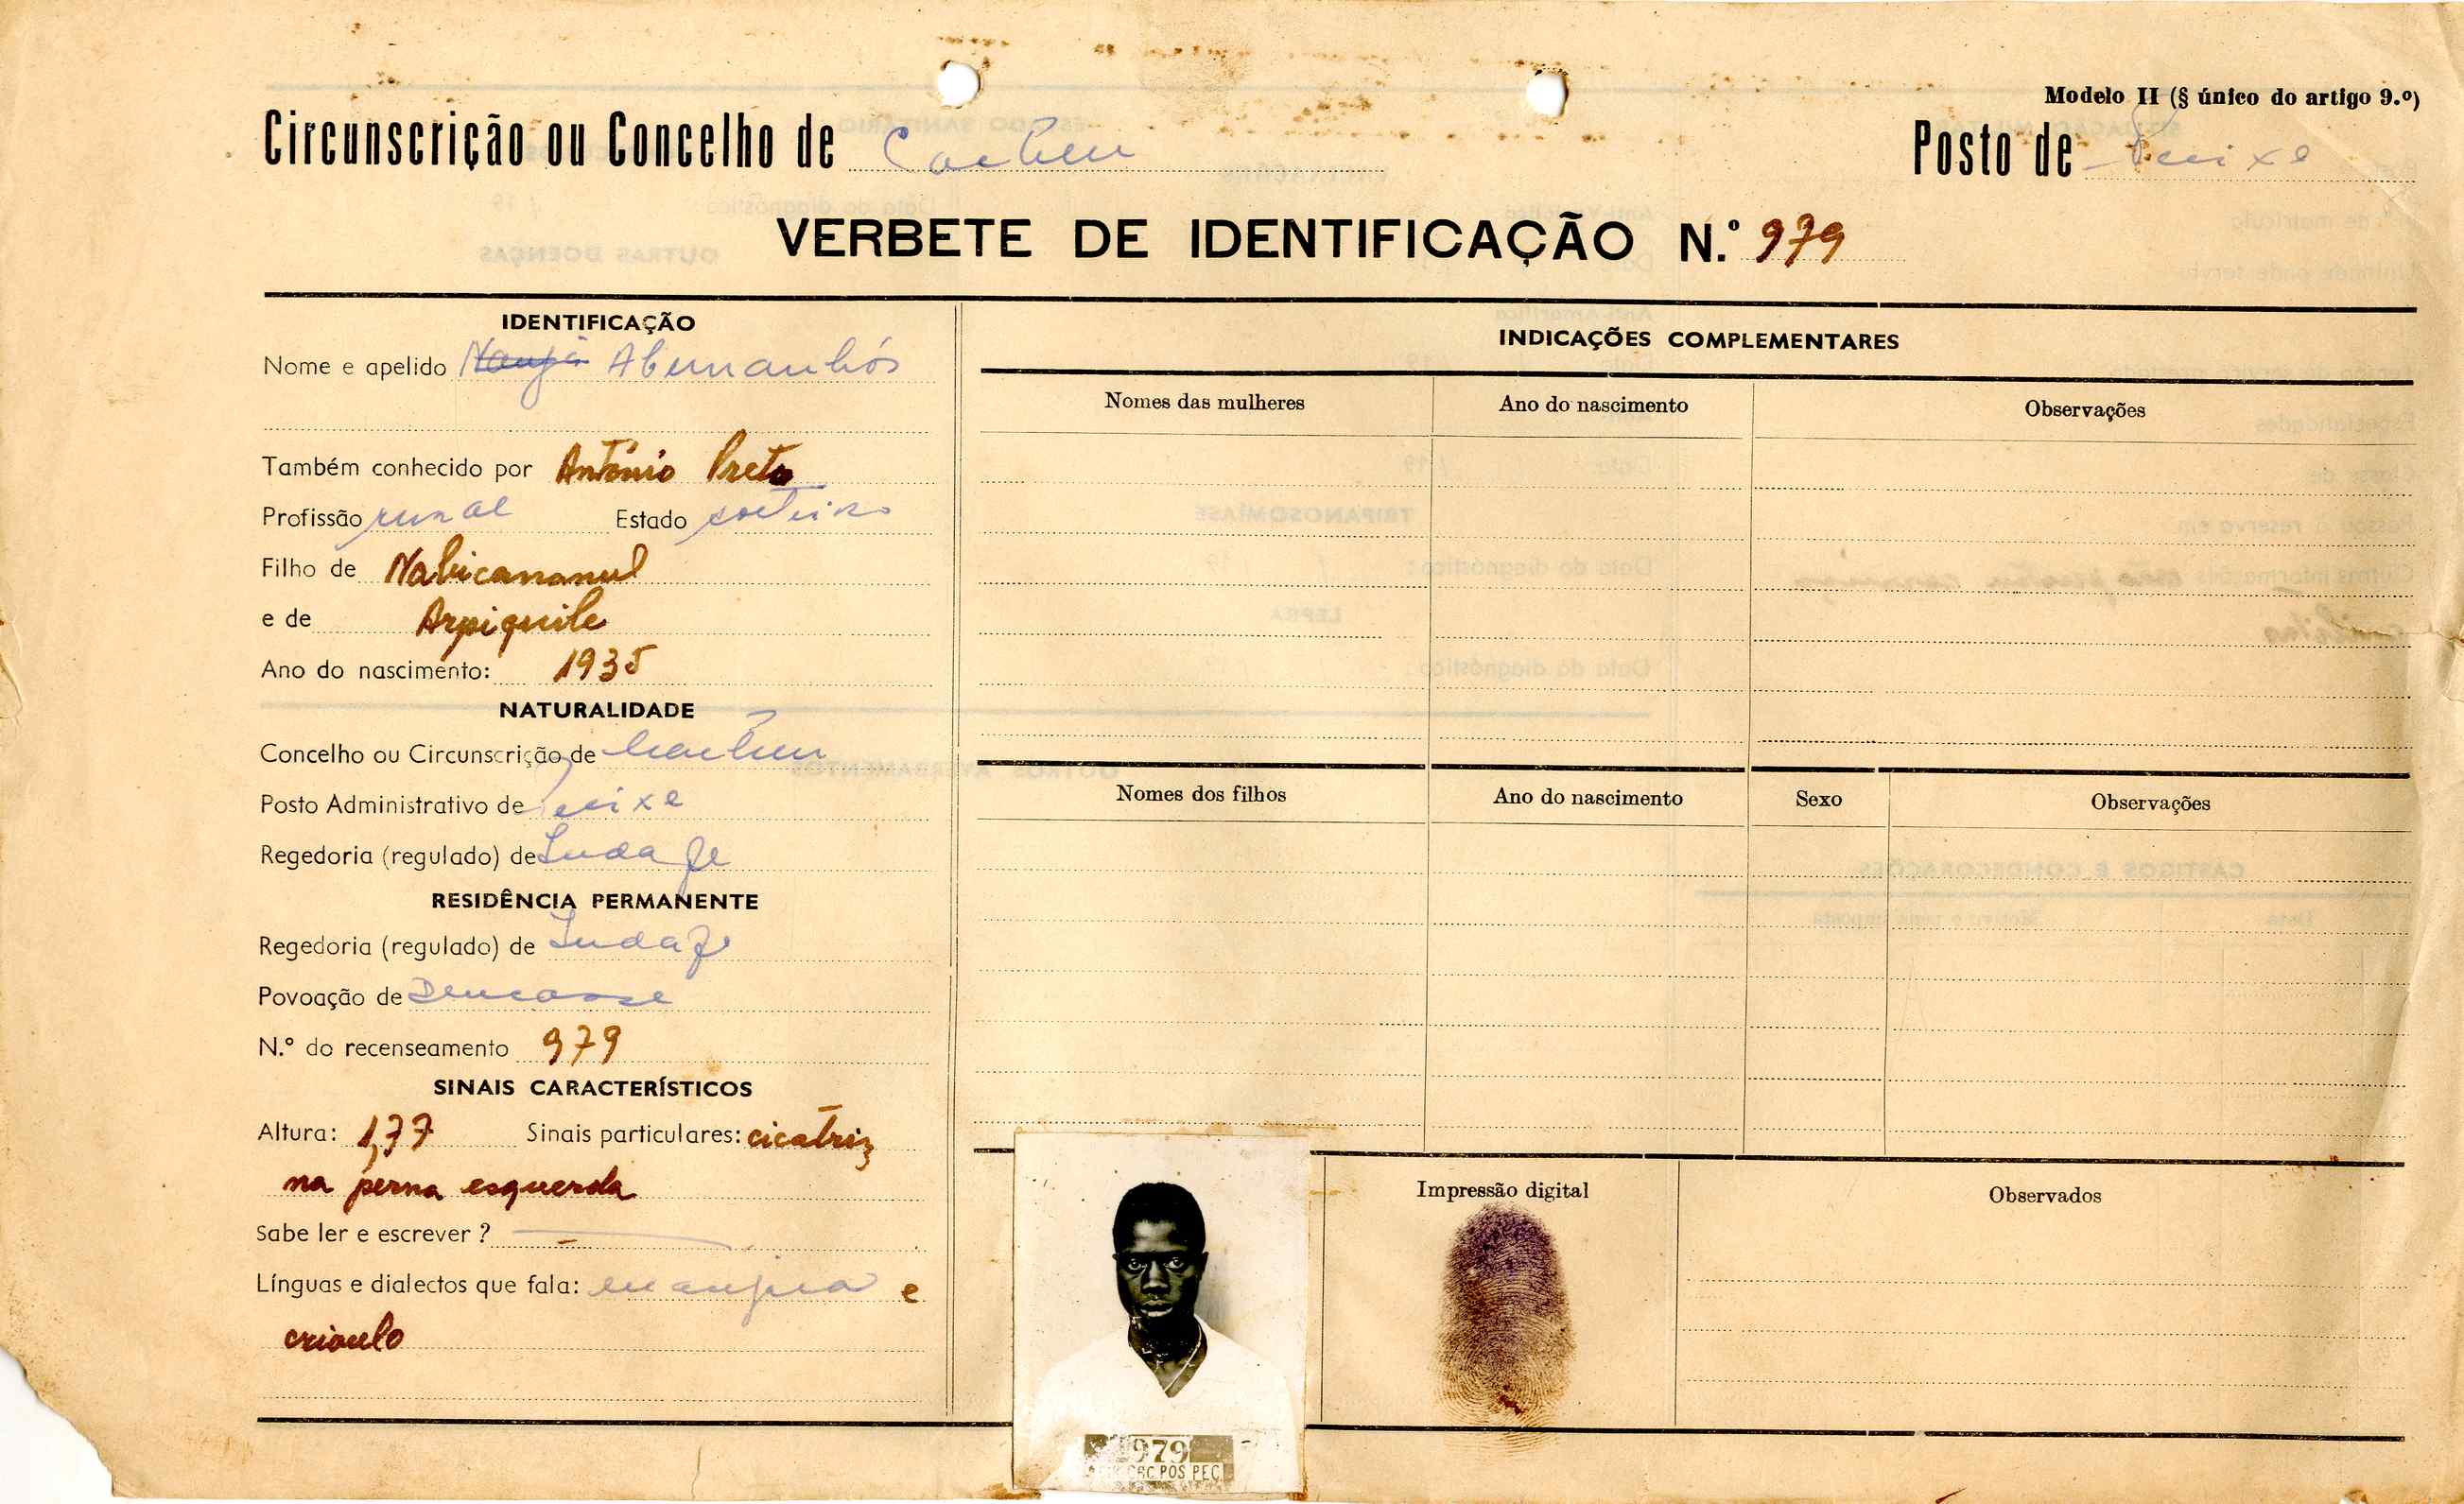 Modelo II (§ único do artigo 9.º)
Circunscrição ou Concelho de Cacheu Posto de Peixe
VERBETE DE IDENTIFICAÇÃO N.º 979
IDENTIFICAÇÃO
Nome e apelido Abumanhós
Também conhecido por António Preto
Profissão rural Estado solteiro
Filho de
e de Arpiquile
Ano do nascimento: 1935
NATURALIDADE
Concelho ou Circunscrição de Cacheu
Posto Administrativo de Peixe
Regedoria (regulado) de
RESIDÊNCIA PERMANENTE
Regedoria (regulado) de
Povoação de
N.º do recenseamento 979
SINAIS CARACTERÍSTICOS
Altura: 1,77 Sinais particulares: cicatriz
na perna esquerda
Sabe ler e escrever ?
Línguas e dialectos que fala: e
crioulo
INDICAÇÕES COMPLEMENTARES
Nomes das mulheres Ano do nascimento Observações
Nomes dos filhos Ano do nascimento Sexo Observações
Impressão digital Observados
979
CRC POS PEC